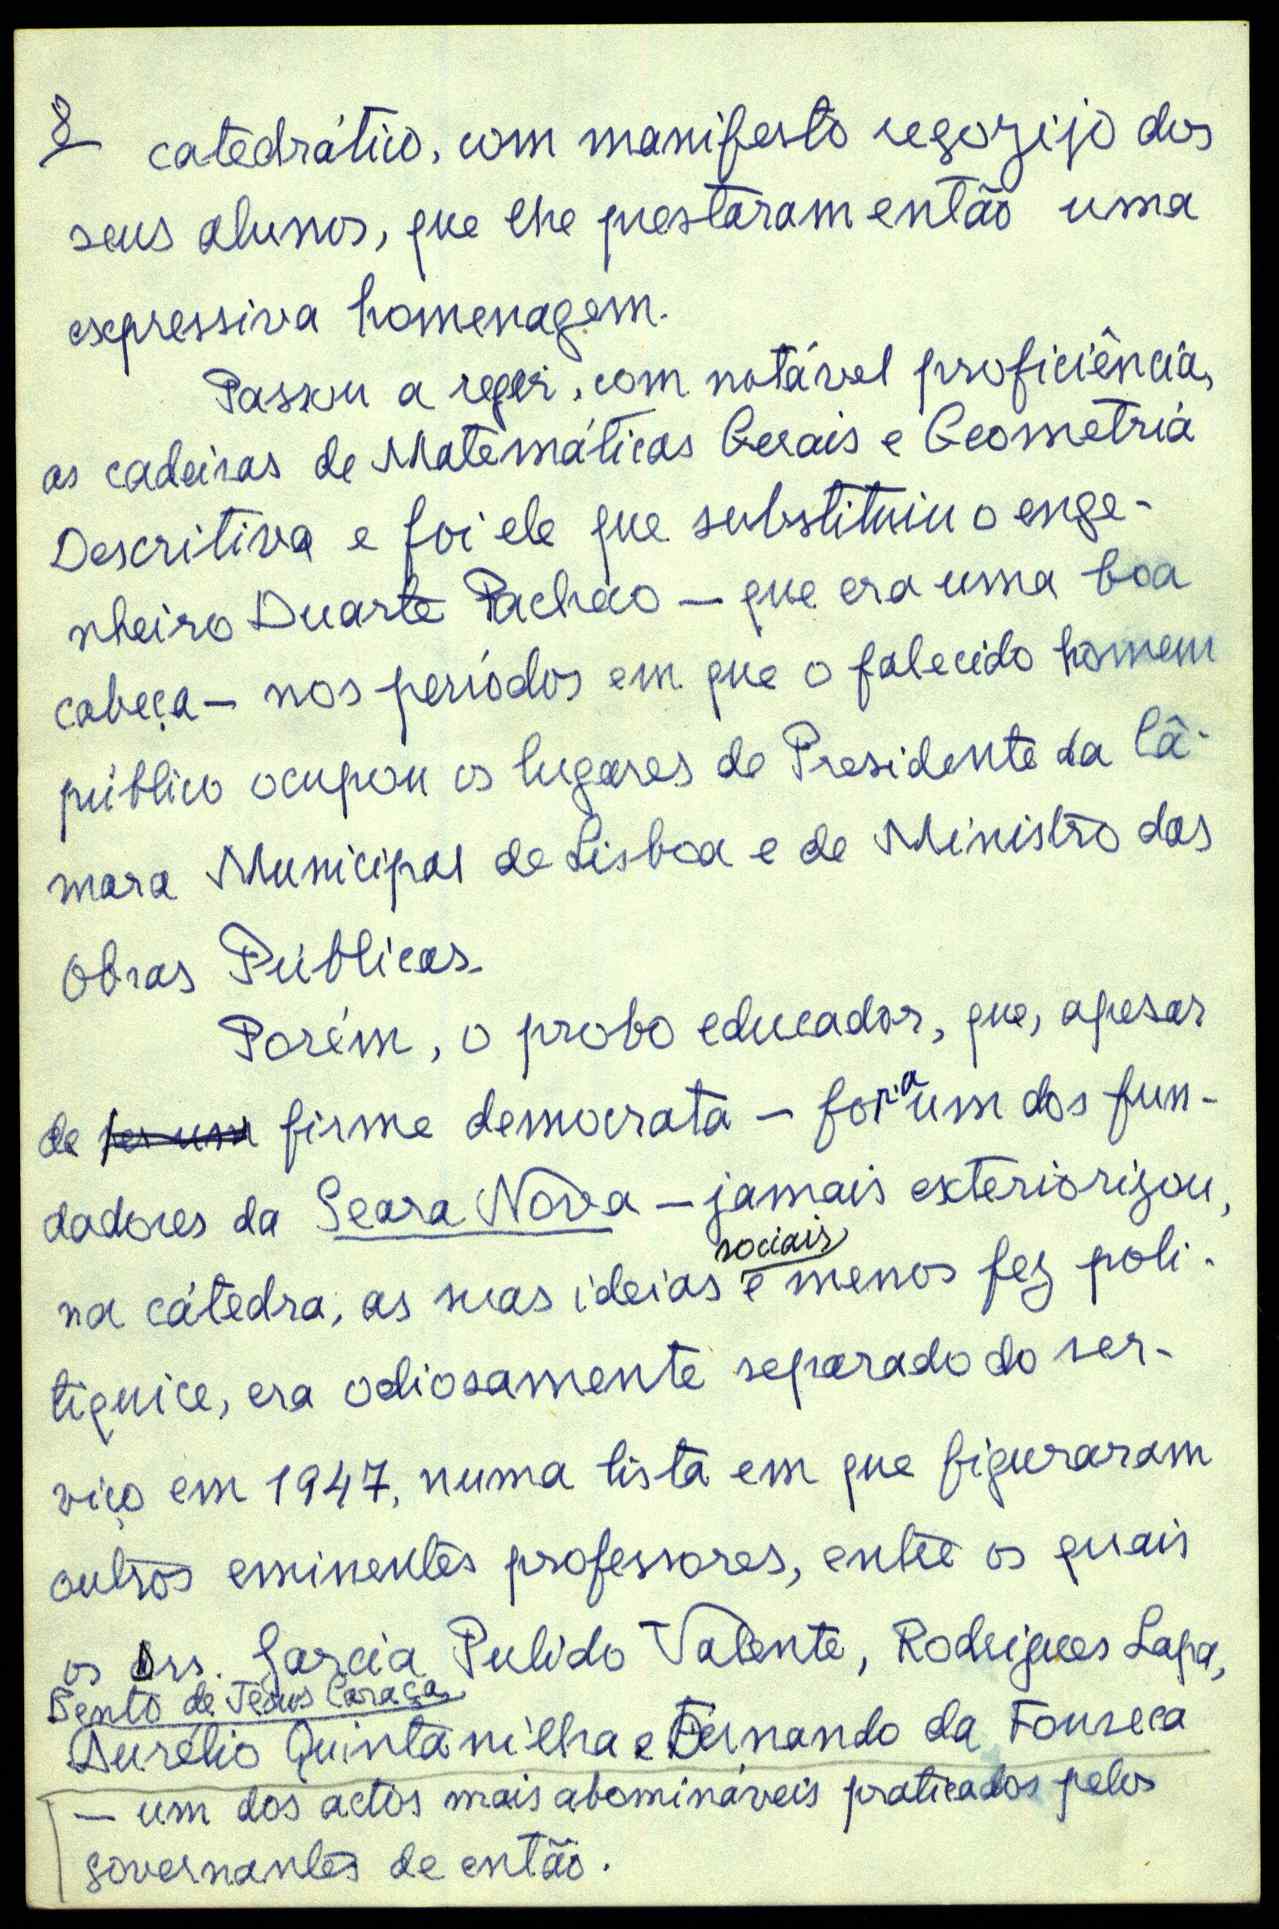 8 catedrático, com manifesto regozijo dos
seus alunos, que lhe prestaram então uma
expressiva homenagem.
Passou a reger, com notável proficiência,
as cadeiras de Matemáticas Gerais e Geometria
Descritiva e foi ele que substituiu o enge-
nheiro Duarte Pacheco — que era uma boa
cabeça — nos períodos em que o falecido homem
público ocupou os lugares de Presidente da Câ-
mara Municipal de Lisboa e de Ministro das
Obras Públicas.
Porém, o probo educador, que, apesar
de ser um firme democrata — fora um dos fun-
dadores da Seara Nova — jamais exteriorizou,
sociais
na cátedra, as suas ideias e menos fez poli-
tiquice, era odiosamente separado do ser-
viço em 1947, numa lista em que figuraram
outros eminentes professores, entre os quais
os Drs. Garcia Pulido Valente, Rodrigues Lapa,
Bento de Jesus Caraça
Aurélio Quintanilha e Fernando da Fonseca
— um dos actos mais abomináveis praticados pelos
governantes de então.